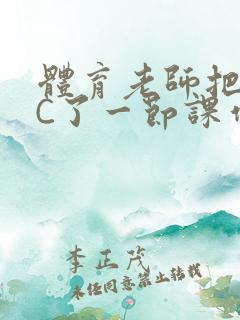 體育老師把
C了一節課
李正茂
未經同意禁止转载